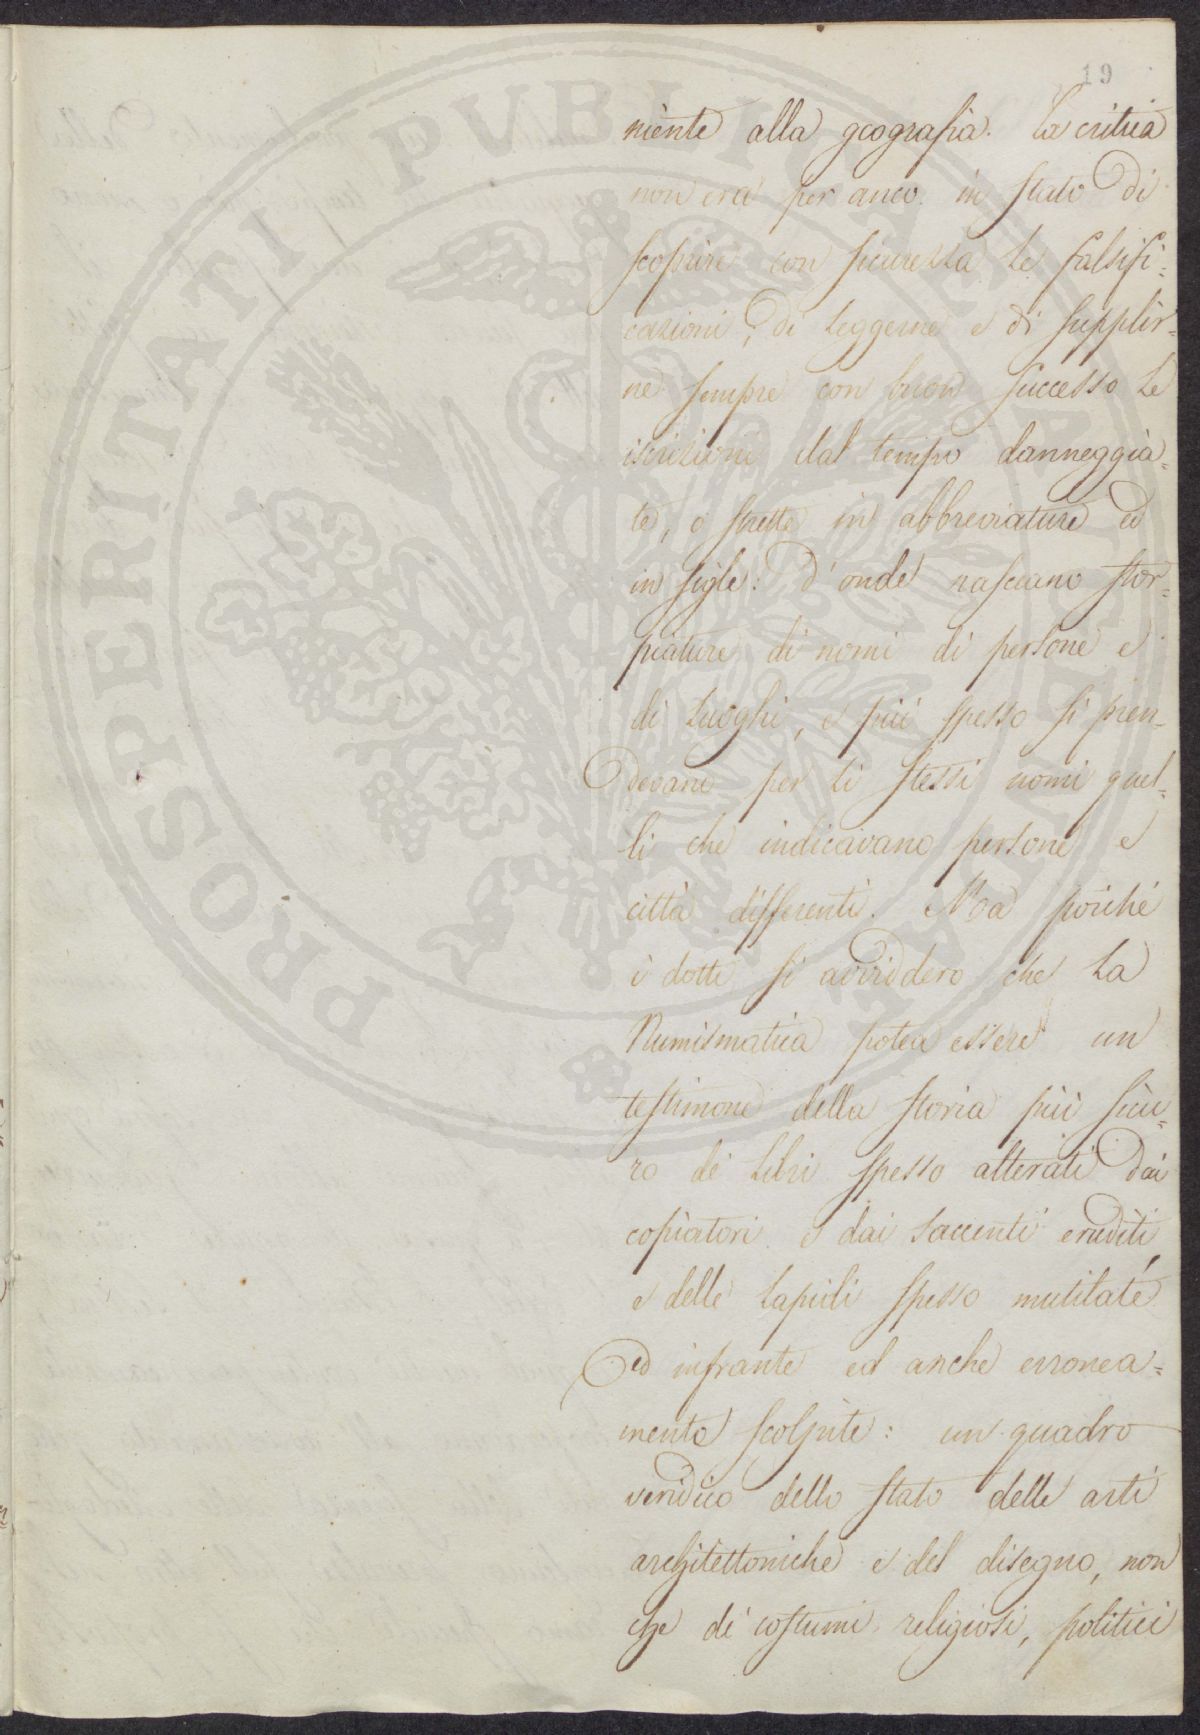 19
niente alla geografia. La critica
non era per anco in stato di
scoprire con sicurezza le falsifi=
cazioni, di leggerne e di supplir=
ne sempre con buon successo le
iscrizioni dal tempo danneggia=
te, o strette in abbreviature ed
in sigle: d'onde nasceano stor=
piature di nomi di persone e
di luoghi, e più spesso si pren=
devano per li stessi nomi quel=
li che indicavano persone e
città differenti. Ma poiché
i dotti si avviddero che la
Numismatica potea essere un
testimone della storia più sicu=
ro de' libri spesso alterati dai
copiatori e dai saccenti eruditi,
e delle lapidi spesso mutilate
ed infrante ed anche erronea=
mente scolpite: un quadro
veridico dello stato delle arti
architettoniche e del disegno, non
che di costumi religiosi, politici
PROSPERITATI PUBLICAE AUGENDAE